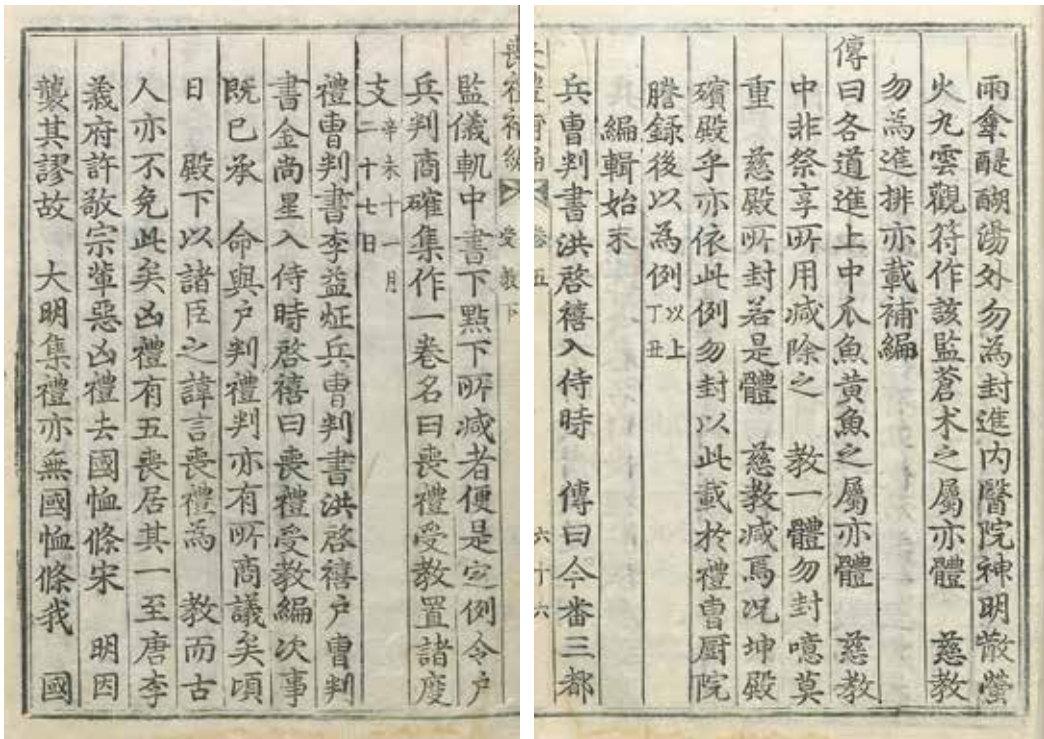 雨傘醍醐湯外勿爲封進內醫院神明散螢
火九雲觀符作該監蒼朮之屬亦體 慈教
勿爲進排亦載補編
傳曰各道進上中爪魚黃魚之屬亦體 慈教
中非祭享所用減除之 教一體勿封噫莫
重 慈殿所封若是體 慈教減焉况坤殿
殯殿乎亦依此例勿封以此載於禮曹厨院
謄錄後以爲例以上丁丑
編輯始末
兵曹判書洪啓禧入侍時 傳曰今番三都
喪禮補編 卷五 受教下 六十六
監儀軌中書下點下所減者便是定例令户
兵判商確集作一卷名曰喪禮受教置諸度
支辛未十一月二十七日
禮曹判書李益炡兵曹判書洪啓禧户曹判
書金尙星入侍時啓禧曰喪禮受教編次事
旣已承 命與户判禮判亦有所商議矣頃
日 殿下以諸臣之諱言喪禮爲 教而古
人亦不免此矣凶禮有五喪居其一至唐李
義府許敬宗輩惡凶禮去國恤條宋 明因
襲其謬故 大明集禮亦無國恤條我 國